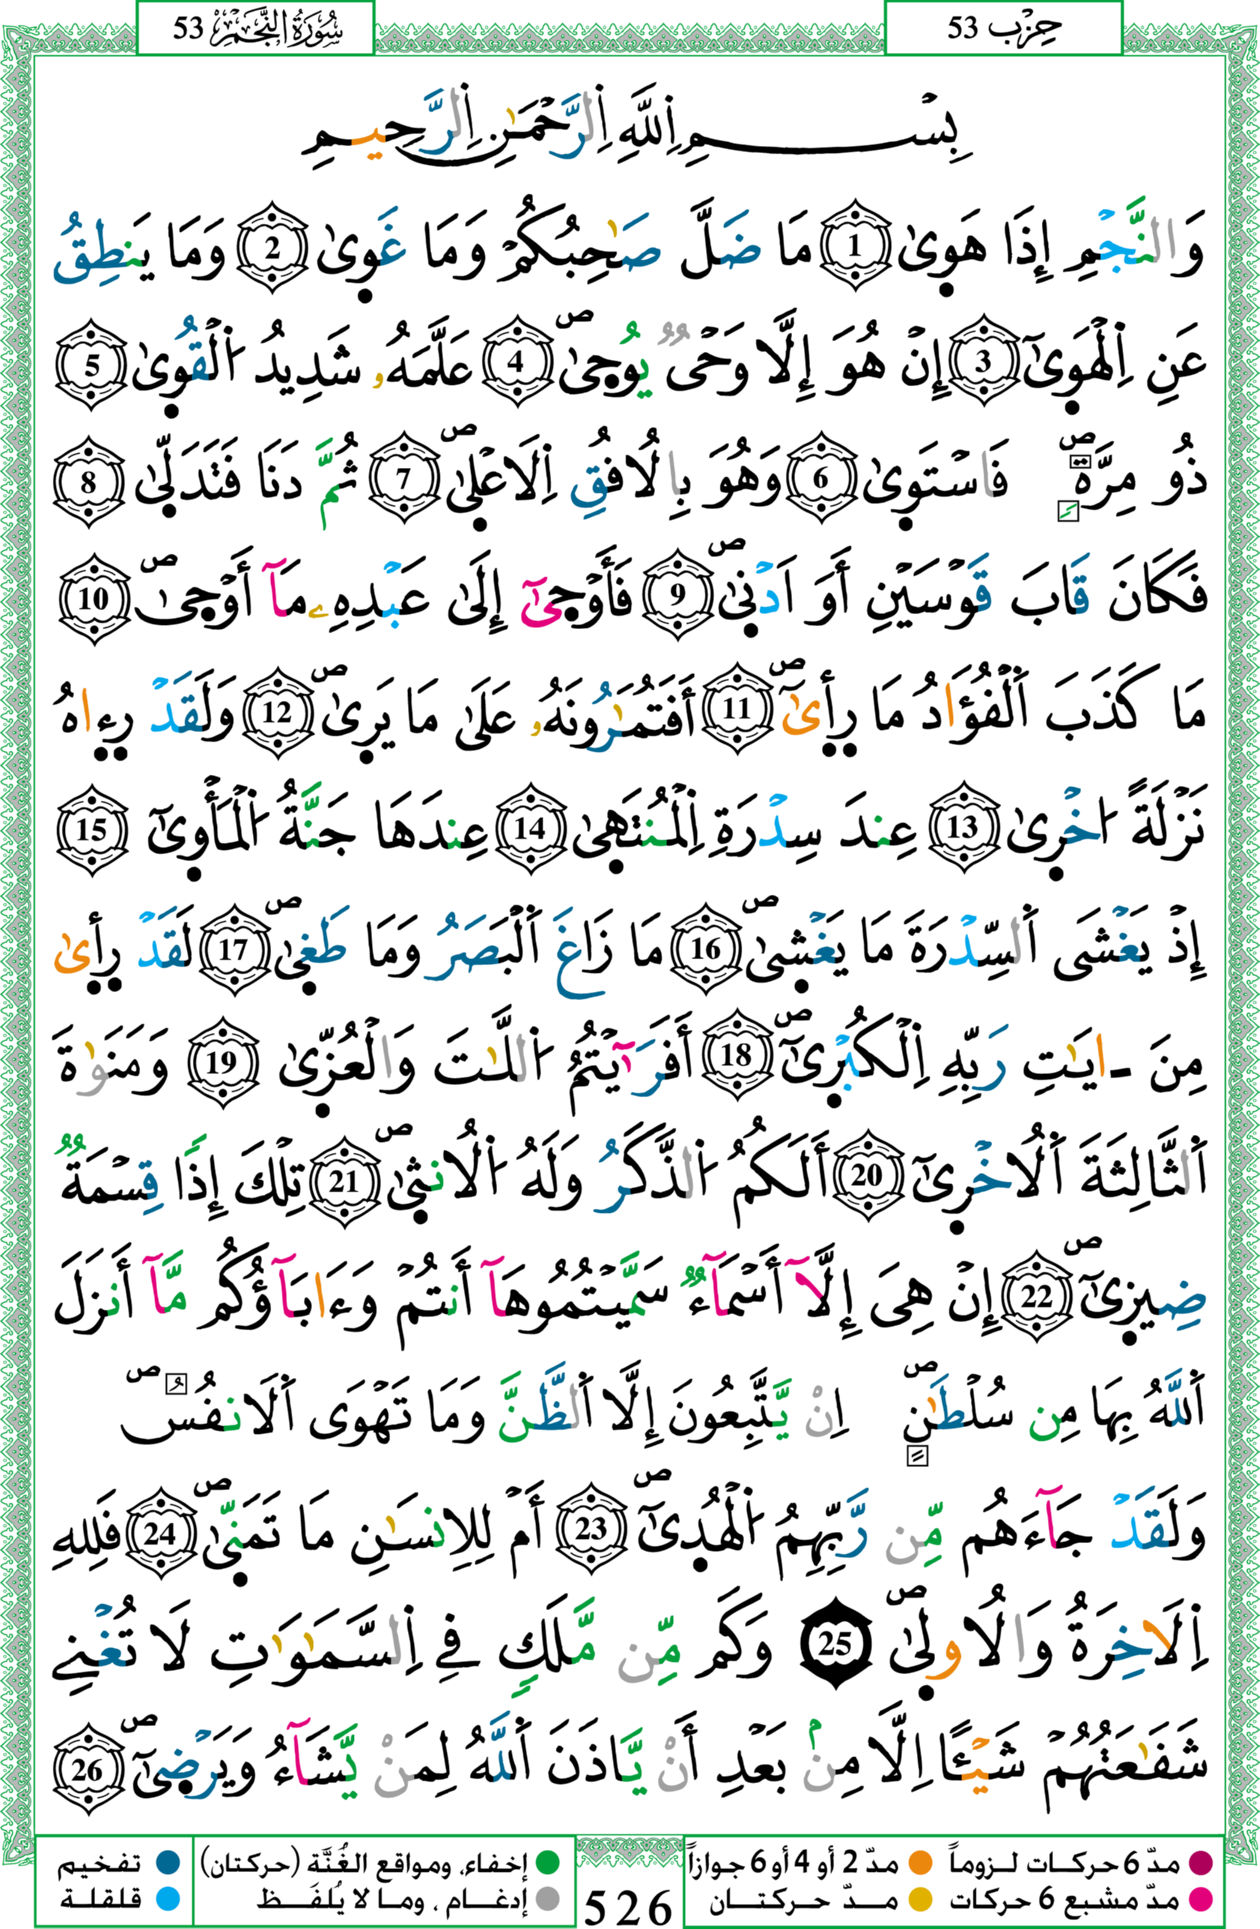 حِزْب 53
سُورَةُ النَّجْمِ 53
بِسْمِ اِللَّهِ اِلرَّحْمَٰنِ اِلرَّحِيمِ
وَالنَّجْمِ إِذَا هَوٜىٰ 1 مَا ضَلَّ صَٰحِبُكُمْ وَمَا غَوٜىٰ 2 وَمَا يَنطِقُ
عَنِ اِلْهَوٜىٰٓ 3 إِنْ هُوَ إِلَّا وَحْىٌ يُوحٜىٰ ص 4 عَلَّمَهُۥ شَدِيدُ اُ۬لْقُوٜىٰ 5
ذُو مِرَّةٍ ص فَاسْتَوٜىٰ 6 وَهُوَ بِالُافُقِ اِلَاعْلٜىٰ ص 7 ثُمَّ دَنَا فَتَدَلّٜىٰ 8
فَكَانَ قَابَ قَوْسَيْنِ أَوَ اَدْنٜىٰ ص 9 فَأَوْحٜىٰٓ إِلَىٰ عَبْدِهِۦ مَآ أَوْحٜىٰ ص 10
مَا كَذَبَ اَ۬لْفُؤَادُ مَا رٜأٜىٰٓ ص 11 أَفَتُمَٰرُونَهُۥ عَلَىٰ مَا يَرٜىٰ ص 12 وَلَقَدْ رٜءٜاهُ
نَزْلَةً اُخْرٜىٰ 13 عِندَ سِدْرَةِ اِلْمُنتَهٜىٰ 14 عِندَهَا جَنَّةُ اُ۬لْمَأْوٜىٰٓ 15
إِذْ يَغْشَى اَ۬لسِّدْرَةَ مَا يَغْشٜىٰ ص 16 مَا زَاغَ اَ۬لْبَصَرُ وَمَا طَغٜىٰ ص 17 لَقَدْ رٜأٜىٰ
مِنَ ـ اٰيَٰتِ رَبِّهِ اِلْكُبْرٜىٰٓ ص 18 أَفَرَٰٓيْتُمُ اُ۬للَّٰتَ وَالْعُزّٜىٰ 19 وَمَنَوٰةَ
اَ۬لثَّالِثَةَ اَ۬لُاخْرٜىٰٓ 20 أَلَكُمُ اُ۬لذَّكَرُ وَلَهُ اُ۬لُانثٜىٰ ص 21 تِلْكَ إِذًا قِسْمَةٌ
ضِيزٜىٰٓ ص 22 إِنْ هِىَ إِلَّآ أَسْمَآءٌ سَمَّيْتُمُوهَآ أَنتُمْ وَءَابَآؤُكُم مَّآ أَنزَلَ
اَ۬للَّهُ بِهَا مِن سُلْطَٰنٍ ص اِنْ يَّتَّبِعُونَ إِلَّا اَ۬لظَّنَّ وَمَا تَهْوَى اَ۬لَانفُسُ ص
وَلَقَدْ جَآءَهُم مِّن رَّبِّهِمُ اُ۬لْهُدٜىٰٓ ص 23 أَمْ لِلِانسَٰنِ مَا تَمَنّٜىٰ ص 24 فَلِلهِ
اِلَاخِرَةُ وَالُاولٜىٰ ص 25 وَكَم مِّن مَّلَكٍ فِے اِلسَّمَٰوَٰتِ لَا تُغْنِے
شَفَٰعَتُهُمْ شَيْـًٔا اِلَّا مِنۢ بَعْدِ أَنْ يَّاذَنَ اَ۬للَّهُ لِمَنْ يَّشَآءُ وَيَرْضٜىٰٓ ص 26
مدّ 6 حركات لـزوماً
مدّ 2 أو 4 أو 6 جوازاً
إخفاء، ومواقع الغُنَّة (حركتان)
تفخيم
مدّ مشبع 6 حركات
مــدّ حــركتــان
إدغــام ، ومـا لا يُلفَــظ
قلقلة
526